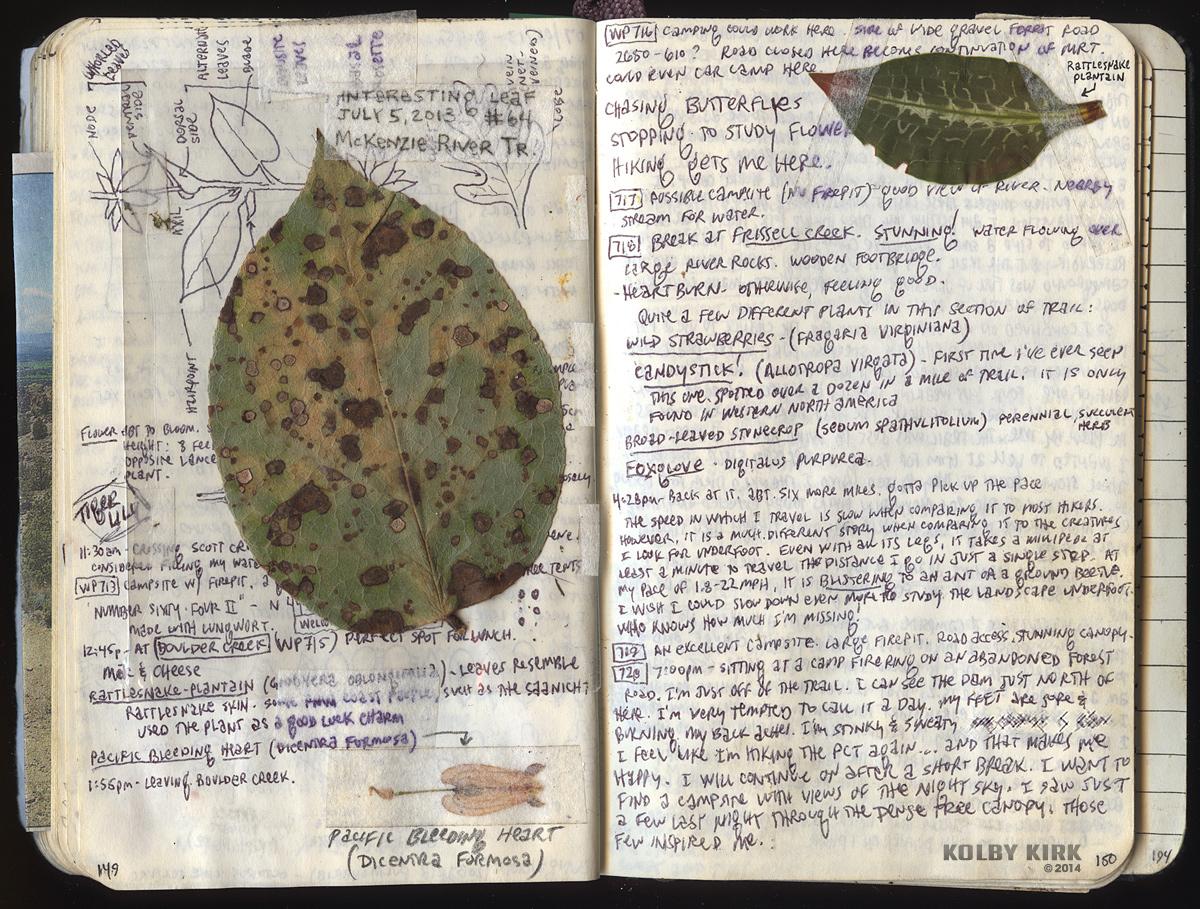 NODE
ALTERNATE
LEAVES
DORSAL
SIDE
AXIL
INTERESTING LEAF
JULY 5, 2013 #64
McKENZIE RIVER TR.
FLOWER
HEIGHT: 3 FEET
OPPOSITE LANCE
PLANT.
TIGER
LILY
11:30am - CROSSING SCOTT CR
CONSIDERED FILLING MY WATE
WP713 CAMPSITE W/ FIREPIT, a
TENTS
"NUMBER SIXTY-FOUR II" - N
MADE WITH LUNGWORT.
12:45p - AT BOULDER CREEK (WP715) PERFECT SPOT FOR LUNCH.
MAC & CHEESE
RATTLESNAKE-PLANTAIN (GOODYERA OBLONGIFOLIA) - LEAVES RESEMBLE
RATTLESNAKE SKIN. SOME COAST PEOPLE, SUCH AS THE SAANICH
USED THE PLANT AS A GOOD LUCK CHARM
PACIFIC BLEEDING HEART (DICENTRA FORMOSA)
1:56pm - LEAVING BOULDER CREEK.
PACIFIC BLEEDING HEART
(DICENTRA FORMOSA)
149
WP716 CAMPING COULD WORK HERE. SIDE OF WIDE GRAVEL FOREST ROAD
2650-610? ROAD CLOSED HERE BECOME CONTINUATION OF MRT.
COULD EVEN CAR CAMP HERE.
RATTLESNAKE
PLANTAIN
CHASING BUTTERFLIES
STOPPING TO STUDY FLOWE
HIKING GETS ME HERE.
717 POSSIBLE CAMPSITE (NO FIREPIT) - GOOD VIEW OF RIVER. NEARBY
STREAM FOR WATER.
718 BREAK AT FRISSELL CREEK. STUNNING! WATER FLOWING OVER
LARGE RIVER ROCKS. WOODEN FOOTBRIDGE.
- HEARTBURN. OTHERWISE, FEELING GOOD.
QUITE A FEW DIFFERENT PLANTS IN THIS SECTION OF TRAIL:
WILD STRAWBERRIES - (FRAGARIA VIRGINIANA)
CANDYSTICK! (ALLOTROPA VIRGATA) - FIRST TIME I'VE EVER SEEN
THIS ONE. SPOTTED OVER A DOZEN IN A MILE OF TRAIL. IT IS ONLY
FOUND IN WESTERN NORTH AMERICA
BROAD-LEAVED STONECROP (SEDUM SPATHULIFOLIUM) PERENNIAL, SUCCULENT
HERB
FOXGLOVE - DIGITALUS PURPUREA.
4:28pm - BACK AT IT. ABT. SIX MORE MILES. GOTTA PICK UP THE PACE
THE SPEED IN WHICH I TRAVEL IS SLOW WHEN COMPARING IT TO MOST HIKERS.
HOWEVER, IT IS A MUCH DIFFERENT STORY WHEN COMPARING IT TO THE CREATURES
I LOOK FOR UNDERFOOT. EVEN WITH ALL ITS LEGS, IT TAKES A MILLIPEDE AT
LEAST A MINUTE TO TRAVEL THE DISTANCE I GO IN JUST A SINGLE STEP. AT
MY PACE OF 1.8-2.2 MPH, IT IS BLISTERING TO AN ANT OR A GROUND BEETLE.
I WISH I COULD SLOW DOWN EVEN MORE TO STUDY THE LANDSCAPE UNDERFOOT.
WHO KNOWS HOW MUCH I'M MISSING.
719 AN EXCELLENT CAMPSITE. LARGE FIREPIT. ROAD ACCESS. STUNNING CANOPY.
720 7:00pm - SITTING AT A CAMP FIRE RING ON AN ABANDONED FOREST
ROAD. I'M JUST OFF OF THE TRAIL. I CAN SEE THE DAM JUST NORTH OF
HERE. I'M VERY TEMPTED TO CALL IT A DAY. MY FEET ARE SORE &
BURNING. MY BACK ACHES. I'M STINKY & SWEATY
I FEEL LIKE I'M HIKING THE PCT AGAIN... AND THAT MAKES ME
HAPPY. I WILL CONTINUE ON AFTER A SHORT BREAK. I WANT TO
FIND A CAMPSITE WITH VIEWS OF THE NIGHT SKY. I SAW JUST
A FEW LAST NIGHT THROUGH THE DENSE TREE CANOPY. THOSE
FEW INSPIRED ME.
KOLBY KIRK
©2014
150
194